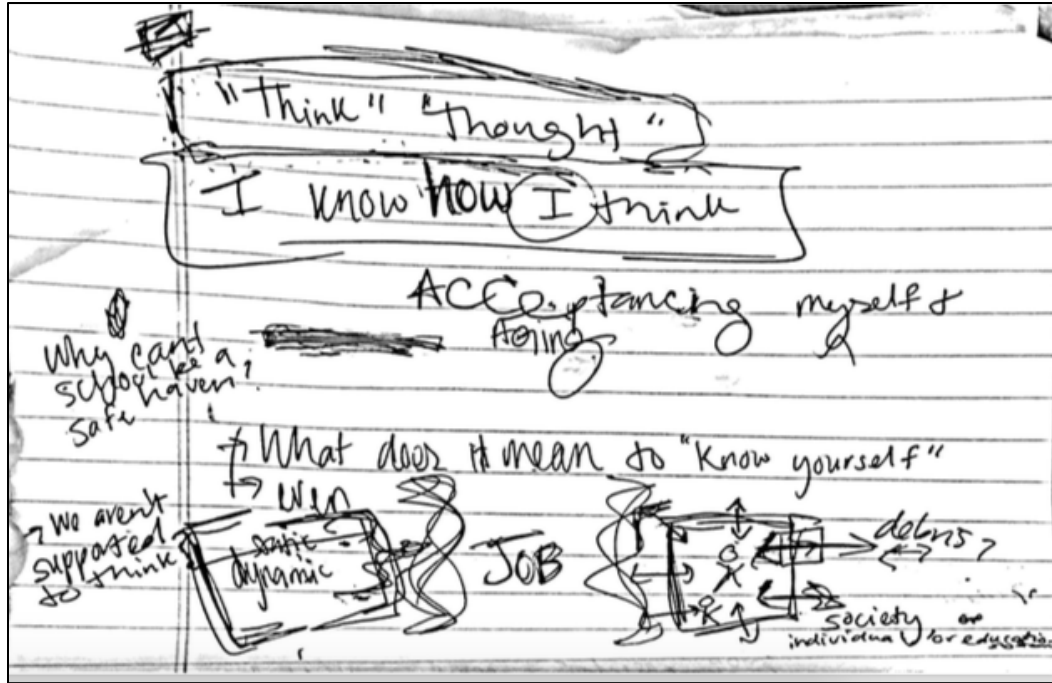 "Think" "Thought"
I know how I think
ACCeptancing myself &
Aging
Why can't
school be a
safe haven?
What does it mean to "Know yourself"
→ even
→ we aren't
supported
to think
static
dynamic
JOB
debris?
society or
individual or education